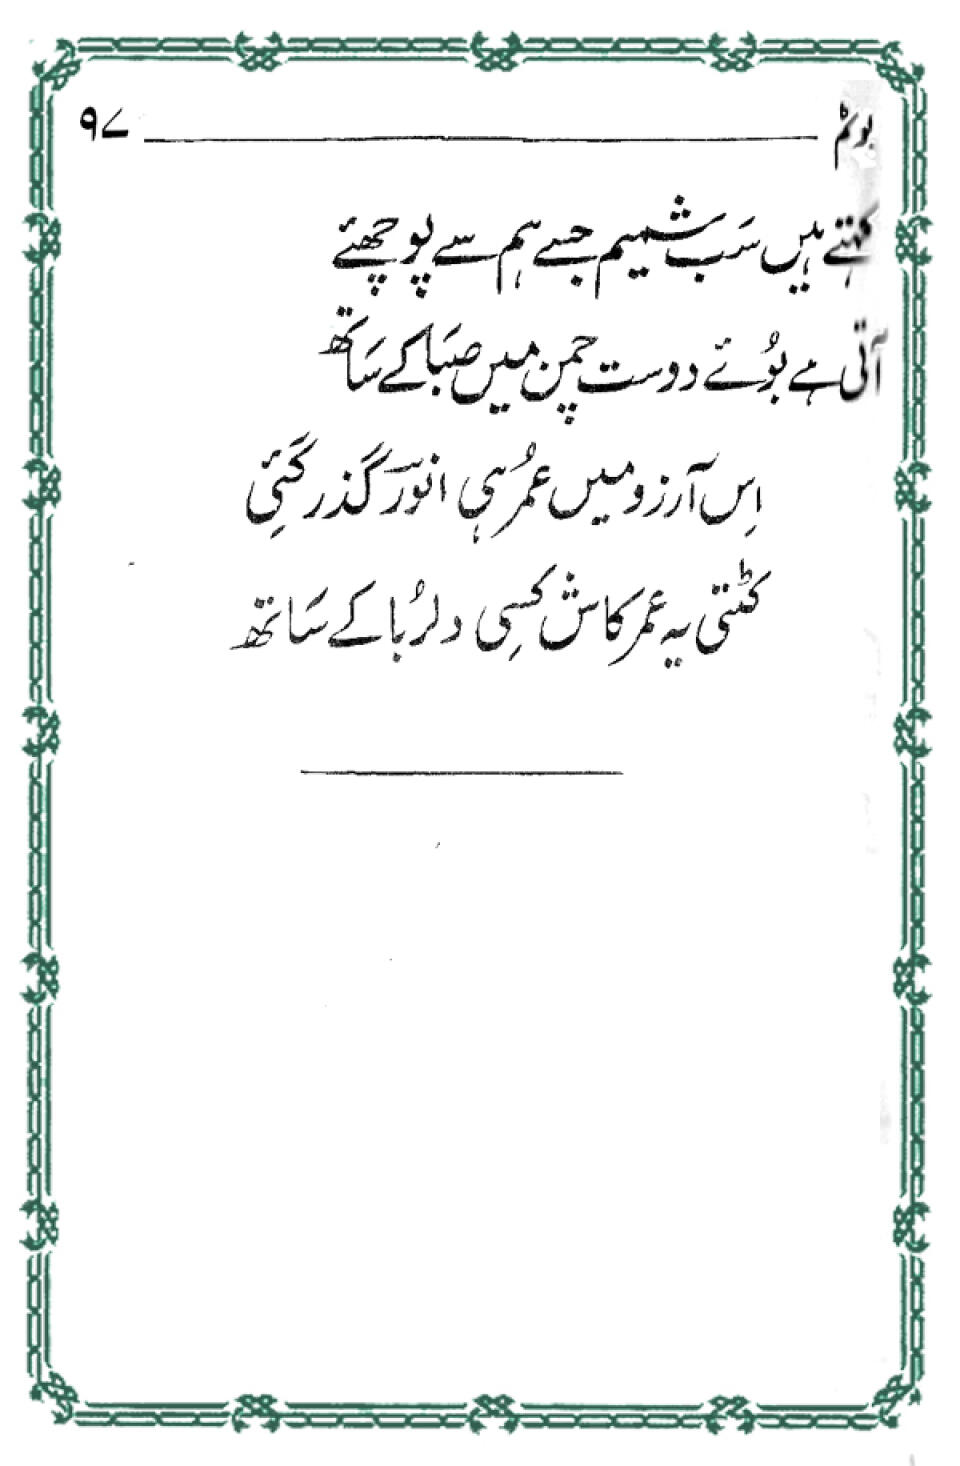 بوئے گُم ۹۷
کہتے ہیں سَب شمیم جسے ہم سے پوچھئے
آتی ہے بوُئے دوست چمن میں صبَا کے سَاتھ
اِس آرزو میں عمرُ ہی انورؔ گذر گئی
کٹتی یہ عمر کاش کسِی دلرُبا کے سَاتھ